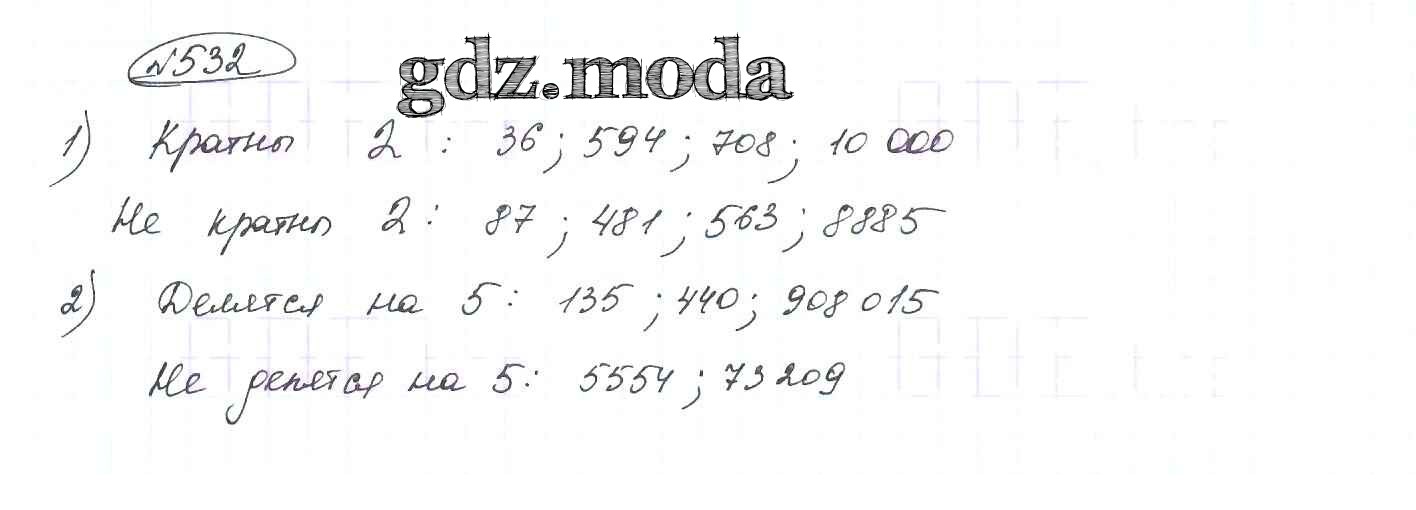 №532
gdz.moda
1) Кратны 2 : 36 ; 594 ; 708 ; 10 000
Не кратны 2 : 87 ; 481 ; 563 ; 8885
2) Делятся на 5 : 135 ; 440 ; 908 015
Не делятся на 5 : 5554 ; 73 209